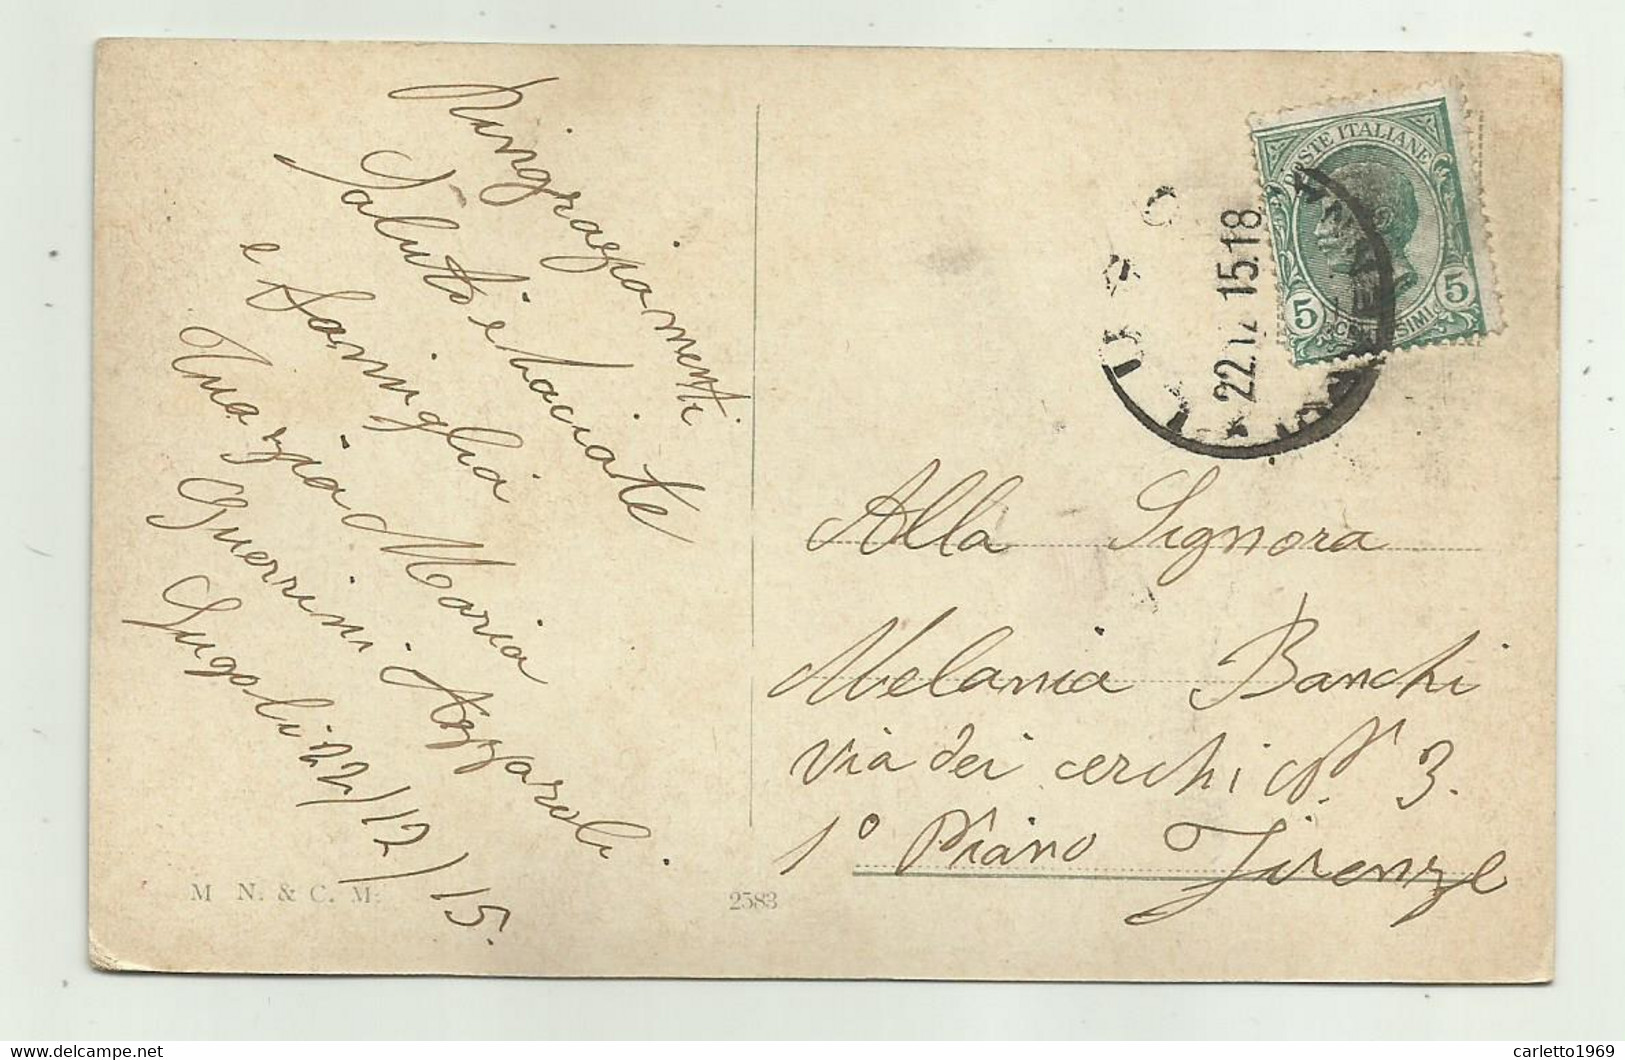 Ringraziamenti
Saluti e baciate
e famiglia
tua zia Maria
Guerrini Azzaroli
Lugo li 22/12/15.
M N. & C. M:
2583
POSTE ITALIANE
5 5
22.12 15.18
LUGO
Alla Signora
Melania Banchi
via dei cerchi N. 3.
1º Piano Firenze
carletto1969